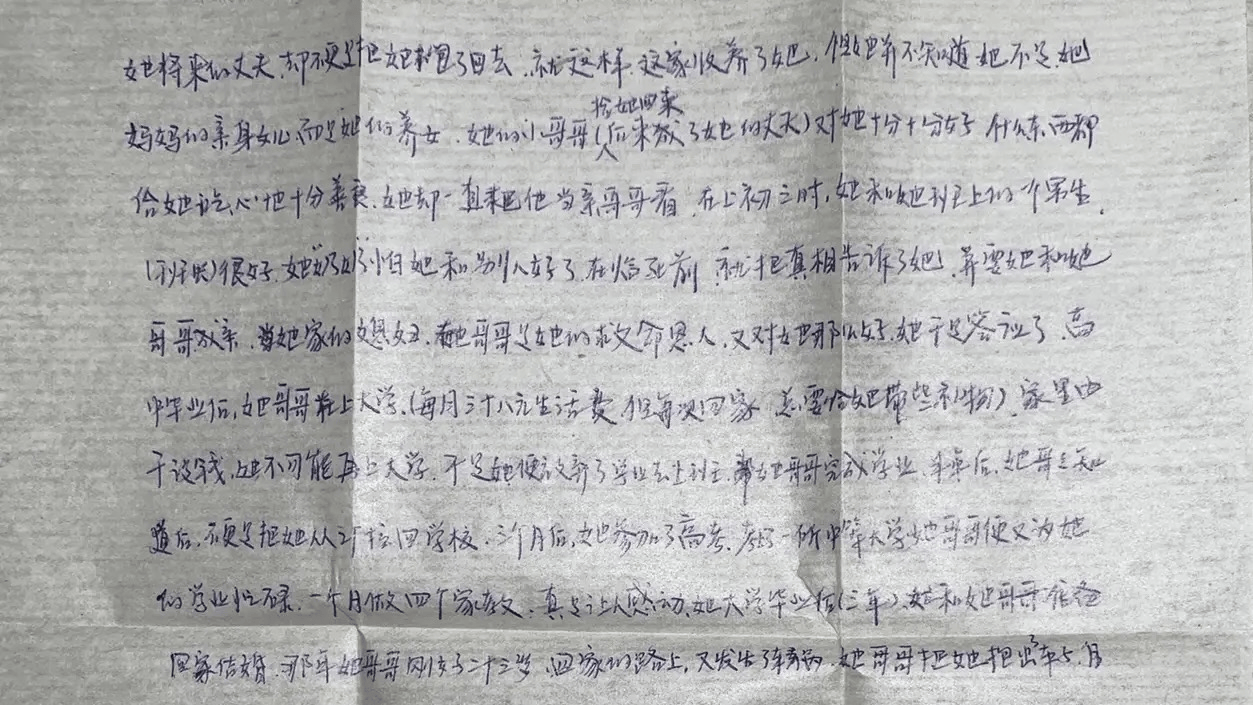 她将来的丈夫,却硬是把她抱了回去,就这样,这家收养了她,但她并不知道她不是她
给她回来
妈妈的亲身女儿,而是她们养女,她的小哥哥(后来成了她的丈夫)对她十分十分好,什么东西都
给她吃,心地十分善良,她却一直把他当亲哥哥看,在上初三时,她和她班上的一个男生,
(班长)很好,她奶奶怕她和别人好了,在临死前,就把真相告诉了她,并要她和她
哥哥成亲,当她家的媳妇,她哥哥是她的救命恩人,又对她那么好,她于是答应了,高
中毕业后,她哥哥在上大学,(每月三十八元生活费,但每次回家,总要给她带些礼物),家里由
于没钱,她不可能再上大学,于是她便放弃了学业去上班,帮她哥哥完成学业,半年后,她哥哥知
道后,硬是把她从工厂拉回学校,三个月后,她参加了高考,考了一所中等大学,她哥哥便又为她
的学业忙碌,一个月做四个家教,真是让人感动,她大学毕业后(三年),她和她哥哥准备
回家结婚,那年她哥哥刚好二十三岁,回家的路上,又发生了车祸,她哥哥把她抱出了车去,自